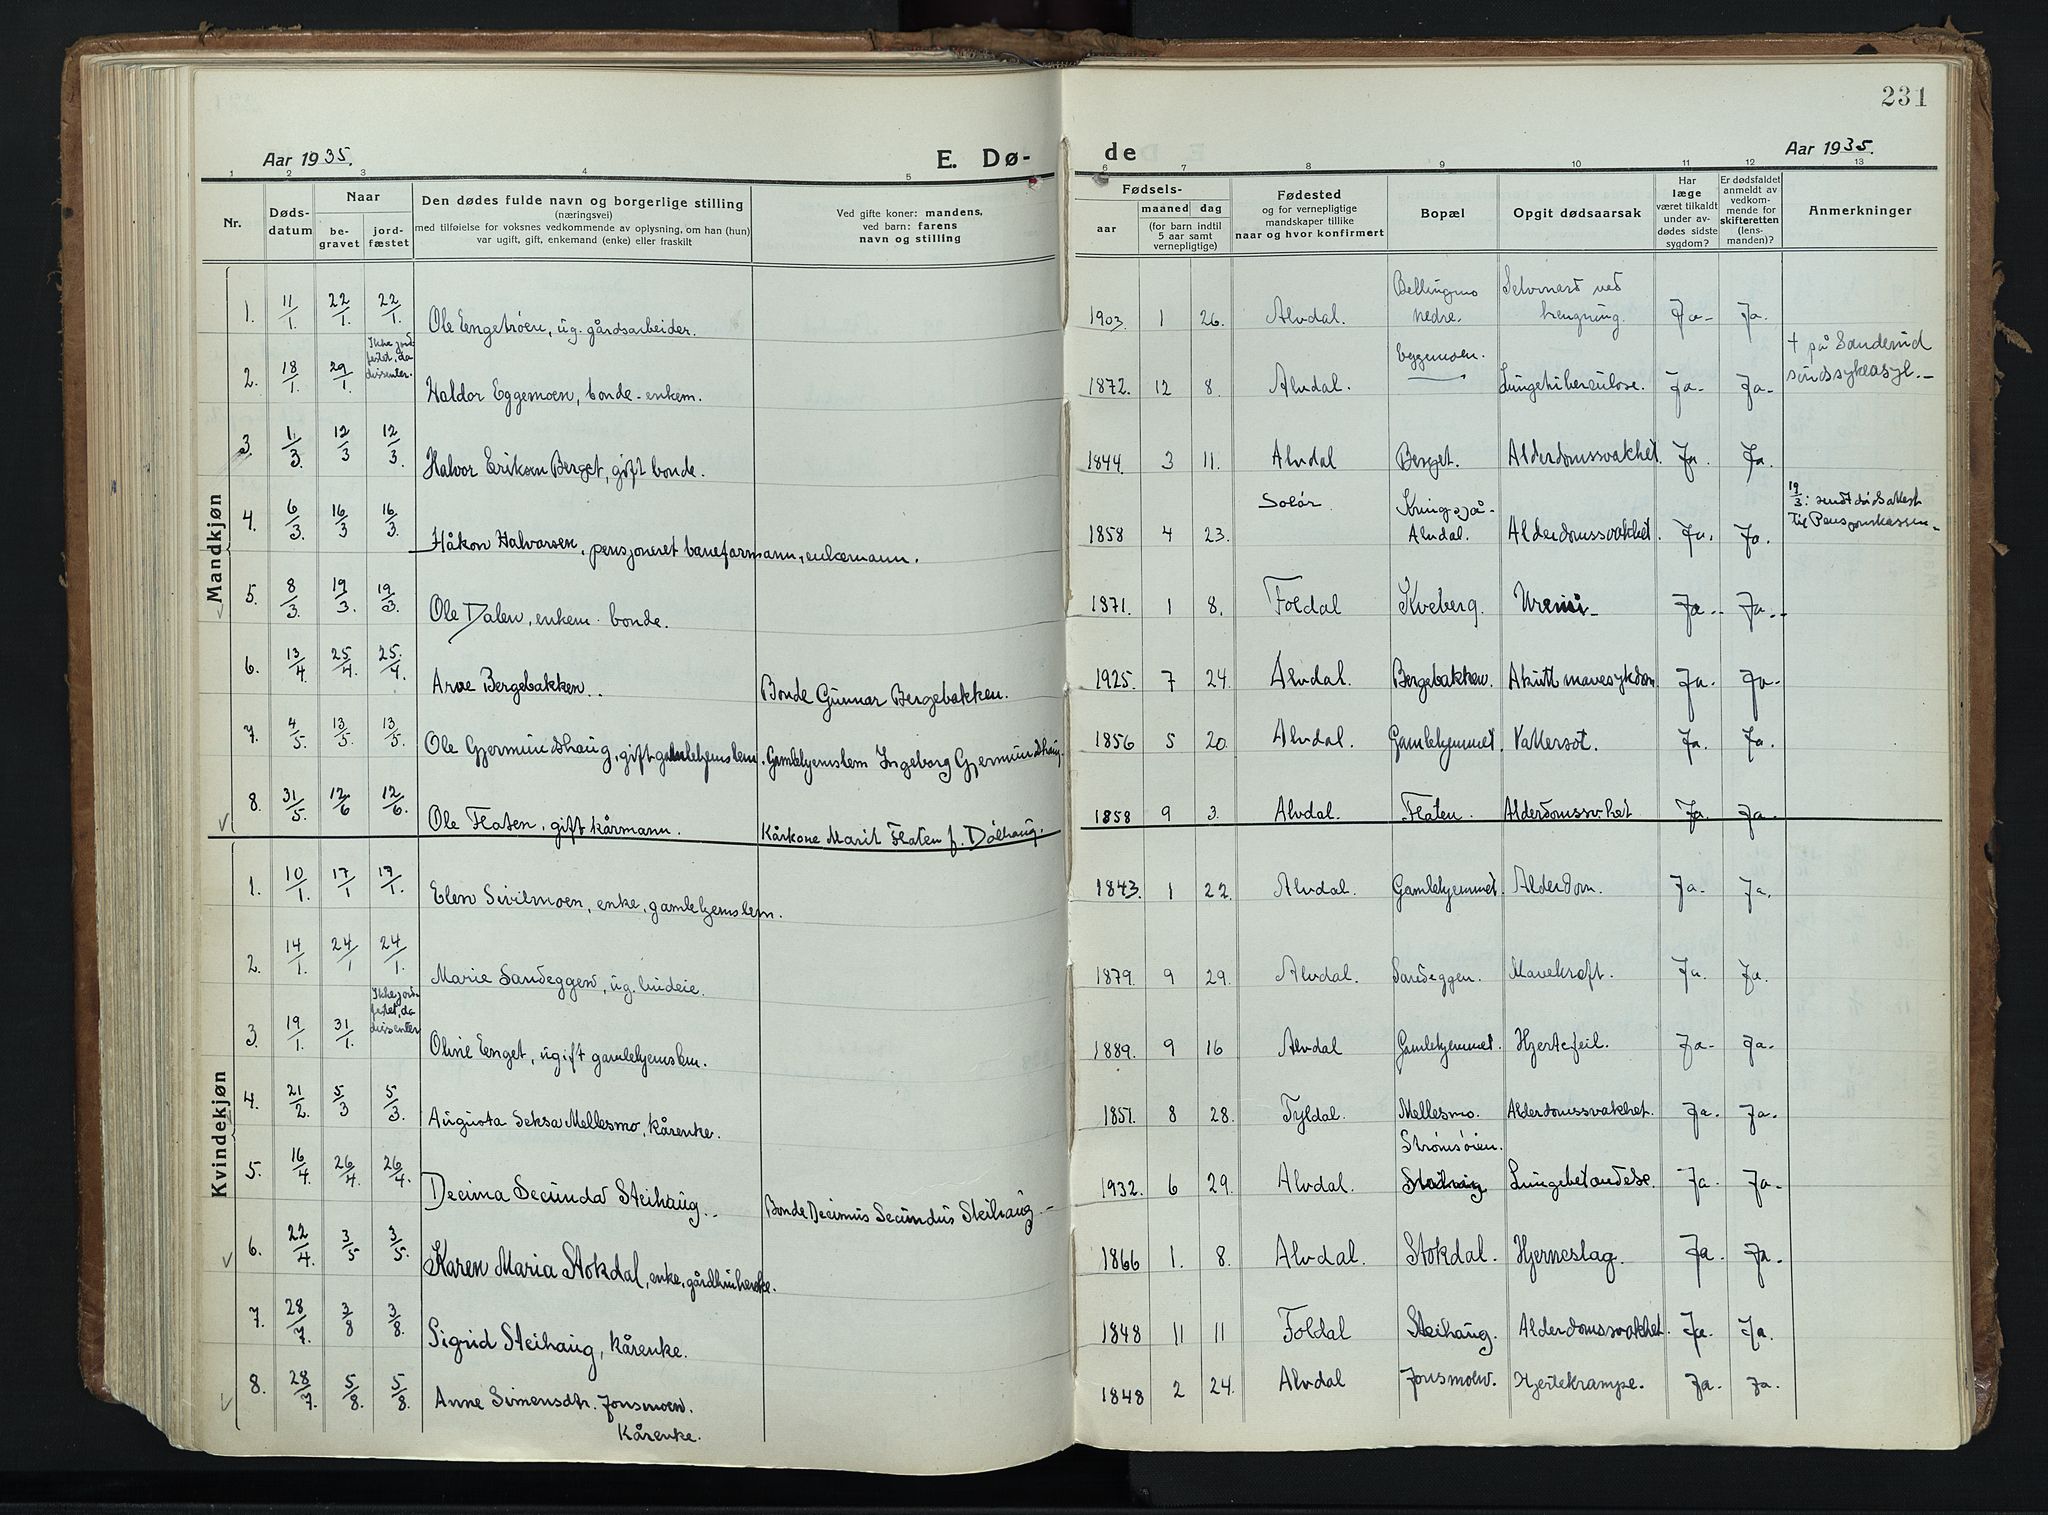 231
Aar 1935.
E. Dø-
de
Aar 1935.
1 2 3 4 5 6 7 8 9 10 11 12 13
Nr.
Døds-
datum
Naar
be-
gravet
jord-
fæstet
Den dødes fulde navn og borgerlige stilling
(næringsvei)
med tilføielse for voksnes vedkommende av oplysning, om han (hun)
var ugift, gift, enkemand (enke) eller fraskilt
Ved gifte koner: mandens,
ved barn: farens
navn og stilling
Fødsels-
aar
maaned dag
(for barn indtil
5 aar samt
vernepligtige)
Fødested
og for vernepligtige
mandskaper tillike
naar og hvor konfirmert
Bopæl
Opgit dødsaarsak
Har
læge
været tilkaldt
under av-
dødes sidste
sygdom?
Er dødsfaldet
anmeldt av
vedkom-
mende for
skifteretten
(lens-
manden)?
Anmerkninger
Mandkjøn
1. 11/1. 22/1. 22/1. Ole Engetrøen, ug. gårdsarbeider. 1903. 1 26. Alvdal. Bellingmo nedre. Selvmord ved hengning. Ja- Ja.
2. 18/1. 29/1. Ikke jord-
festet, da
dissenter.
Haldor Eggemoen, bonde - enkem. 1872. 12 8. Alvdal. Eggemoen. Lungetuberculose. Ja- Ja- † på Sanderud
sindssykeasyl.-
3. 1/3. 12/3 12/3. Halvor Eriksen Berget, gift bonde. 1844. 3 11. Alvdal Berget. Alderdomssvakhet. Ja. Ja.
4. 6/3. 16/3 16/3. Håkon Halvorsen, pensjoneret baneformann, enkemann. 1858 4 23. Solør Kringsjå-
Alvdal. Alderdomssvakhet. Ja. Ja. 19/3: sendt dødsattest
til Pensjonskassen-
5. 8/3. 19/3. 19/3. Ole Dalen, enkem. bonde. 1871. 1 8. Foldal Kveberg. Uremi- Ja- Ja-
6. 13/4 25/4 25/4. Arve Bergebakken.. Bonde Gunnar Bergebakken. 1925. 7 24. Alvdal. Bergebakken. Akutt mavesykdom. Ja. Ja-
7. 4/5. 13/5. 13/5. Ole Gjermundshaug, gift gamlehjemslem. Gamlehjemslem Ingeborg Gjermundshaug. 1856 5 20. Alvdal. Gamlehjemmet. Vattersot. Ja. Ja.
8. 31/5. 12/6 12/6. Ole Flaten, gift kårmann. Kårkone Marit Flaten f. Dølhaug. 1858 9 3. Alvdal. Flaten. Alderdomssv.het. Ja. Ja.
Kvindekjøn
1. 10/1. 17/1 17/1. Elen Sivilmoen, enke, gamlehjemslem. 1843. 1 22. Alvdal. Gamlehjemmet. Alderdom. Ja. Ja.
2. 14/1. 24/1 24/1. Marie Sandeggen, ug. budeie. 1879. 9 29. Alvdal. Sandeggen. Mavekræft. Ja. Ja.
3. 19/1. 31/1. Ikke jord-
festet, da
dissenter
Oline Enget, ugift gamlehjemslem. 1889. 9 16 Alvdal Gamlehjemmet. Hjertefeil. Ja- Ja-
4. 21/2. 5/3 5/3. Augusta Seksa Mellesmo, kårenke. 1851. 8 28. Tyldal. Mellesmo. Alderdomssvakhet. Ja. Ja-
5. 16/4 26/4. 26/4. Decima Secunda Steihaug.. Bonde Decimus Secundus Steihaug.- 1932. 6 29. Alvdal. Strømsøien. Lungebetendelse. Ja. Ja-
6. 22/4. 3/5 3/5. Karen Maria Stokdal, enke, gårdbrukerske. 1866 1. 8. Alvdal. Stokdal. Hjerneslag. Ja Ja-
7. 28/7. 3/8 3/8. Sigrid Steihaug, kårenke. 1848 11 11 Foldal Steihaug. Alderdomssvakhet. Ja. Ja.
8. 28/7. 5/8. 5/8 Anne Simensdtr. Jonsmoen.
Kårenke. 1848 2 24. Alvdal Jonsmoen. Hjertekrampe. Ja. Ja.